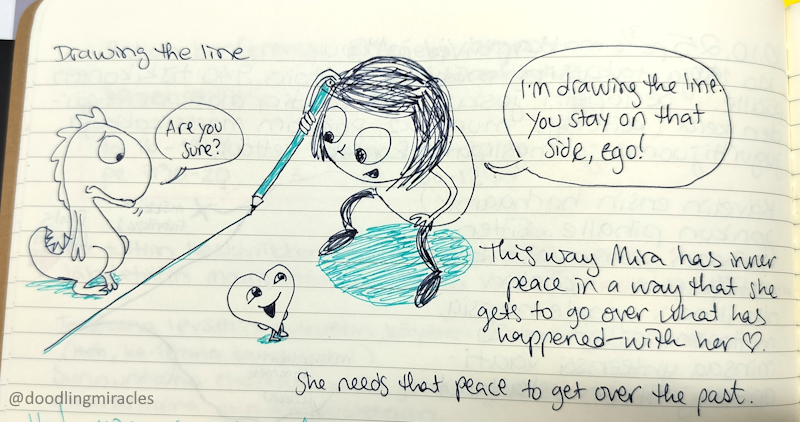 Drawing the line
Are you
sure?
I'm drawing the line.
You stay on that
side, ego!
This way Mira has inner
peace in a way that she
gets to go over what has
happened - with her ♡.
She needs that peace to get over the past.
@doodlingmiracles